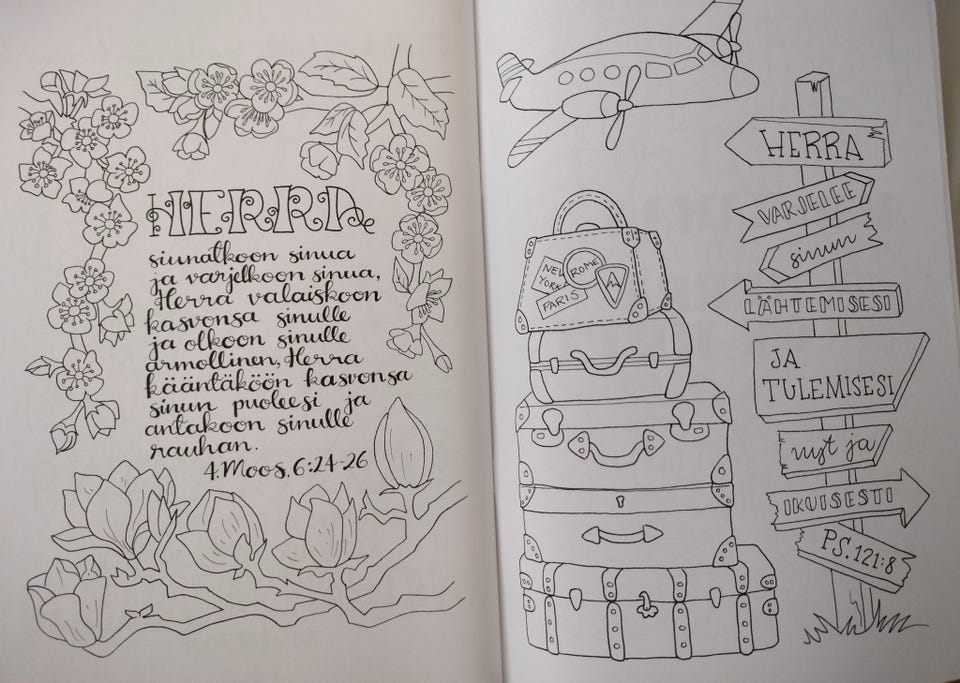 HERRA
siunatkoon sinua
ja varjelkoon sinua,
Herra valaiskoon
kasvonsa sinulle
ja olkoon sinulle
armollinen, Herra
kääntäköön kasvonsa
sinun puoleesi ja
antakoon sinulle
rauhan.
4.Moos.6:24-26
NEW
YORK
ROME
PARIS
HERRA
VARJELEE
sinun
LÄHTEMISESI
JA
TULEMISESI
nyt ja
IKUISESTI
PS.121:8